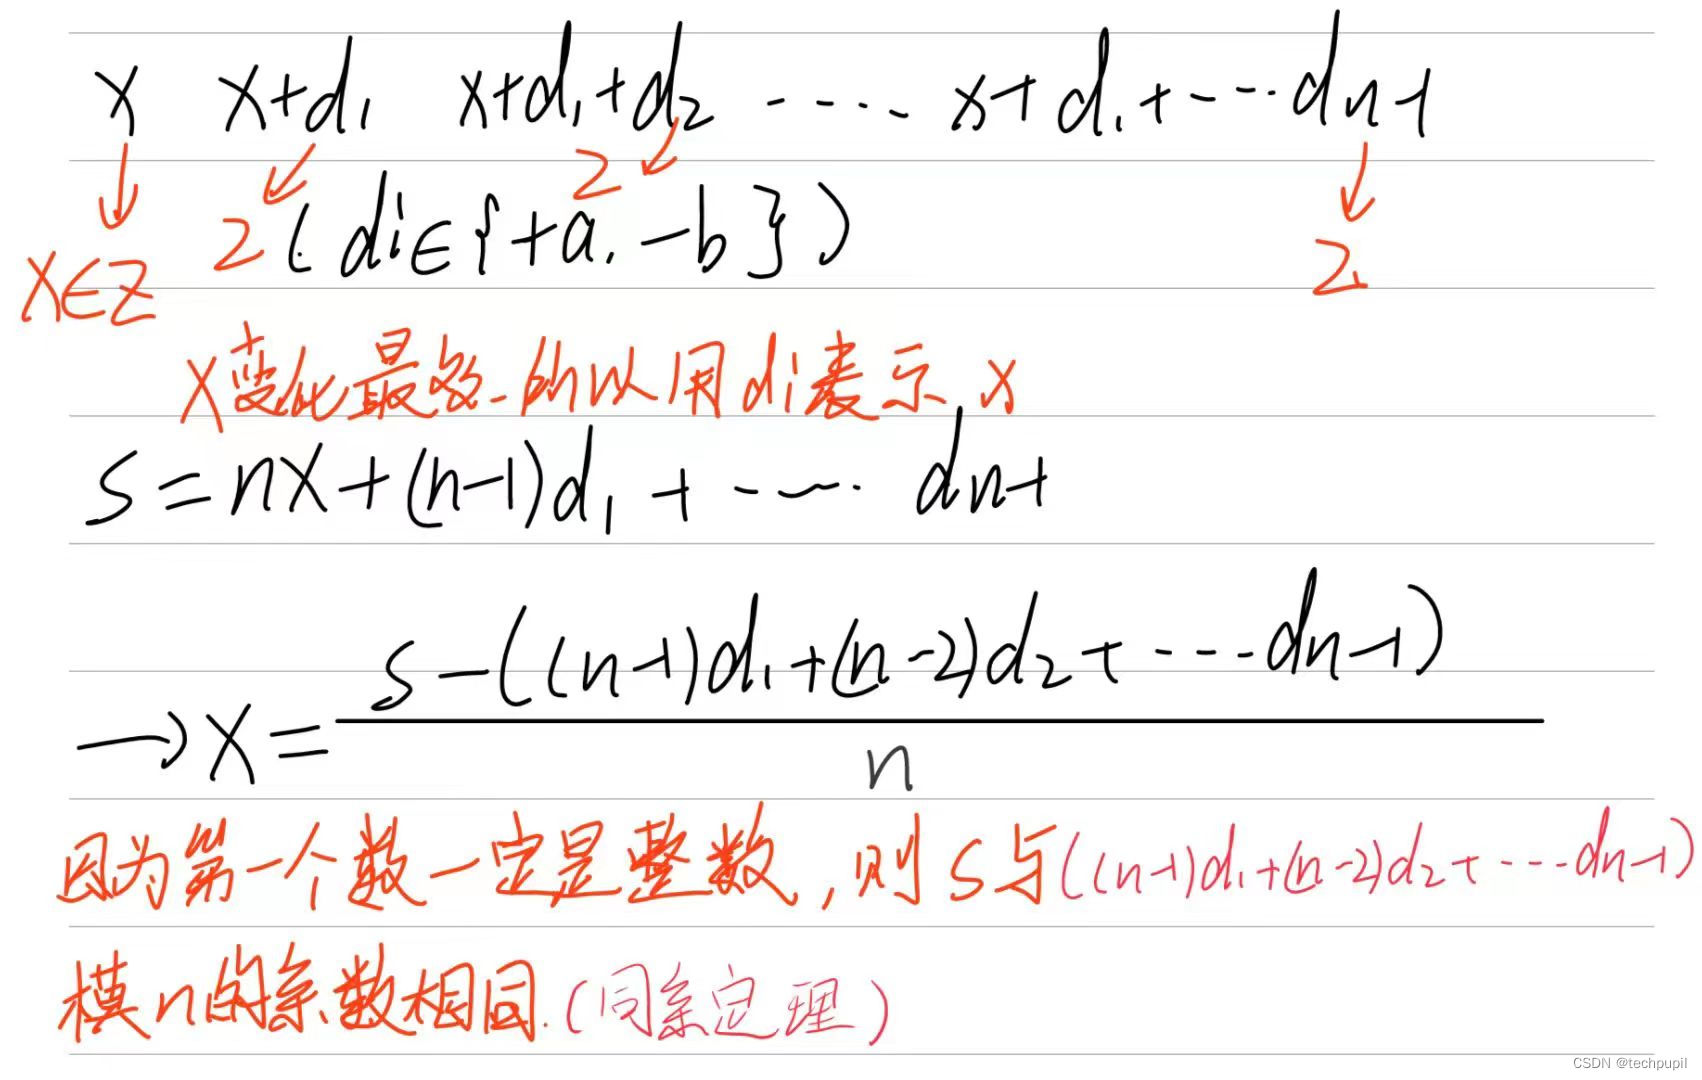 x x+d₁ x+d₁+d₂ ..... x+d₁+---dn-1
2 2
x∈Z 2 (di∈{+a,-b}) 2
x变化最多,所以用di表示x
s=nx+(n-1)d₁+---- dn-1
→x=
s-((n-1)d₁+(n-2)d₂+---dn-1)
n
因为第一个数一定是整数,则s与((n-1)d₁+(n-2)d₂+---dn-1)
模n的余数相同.(同余定理)
CSDN @techpupil